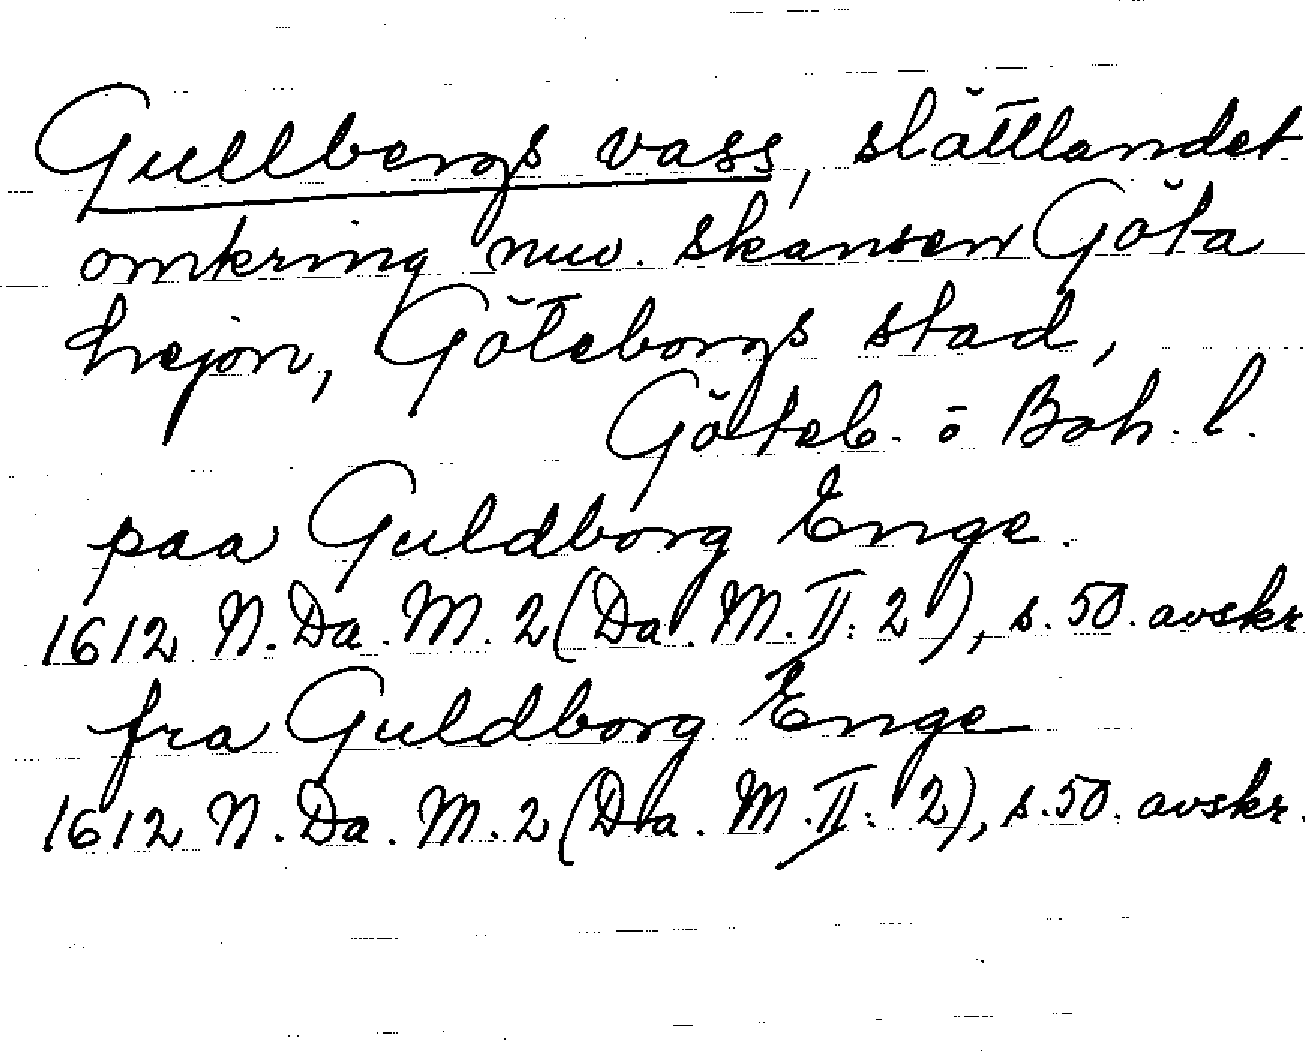 Gullbergs vass, slåttlandet
omkring nuv. skansen Göta
hejon, Göteborgs stad,
Göteb. o Boh. l.
paa Guldborg Enge.
1612 N. Da. M. 2 (Da. M. II: 2), s. 50. avskr.
fra Guldborg Enge
1612 N. Da. M. 2 (Da. M. II: 2), s. 50. avskr.